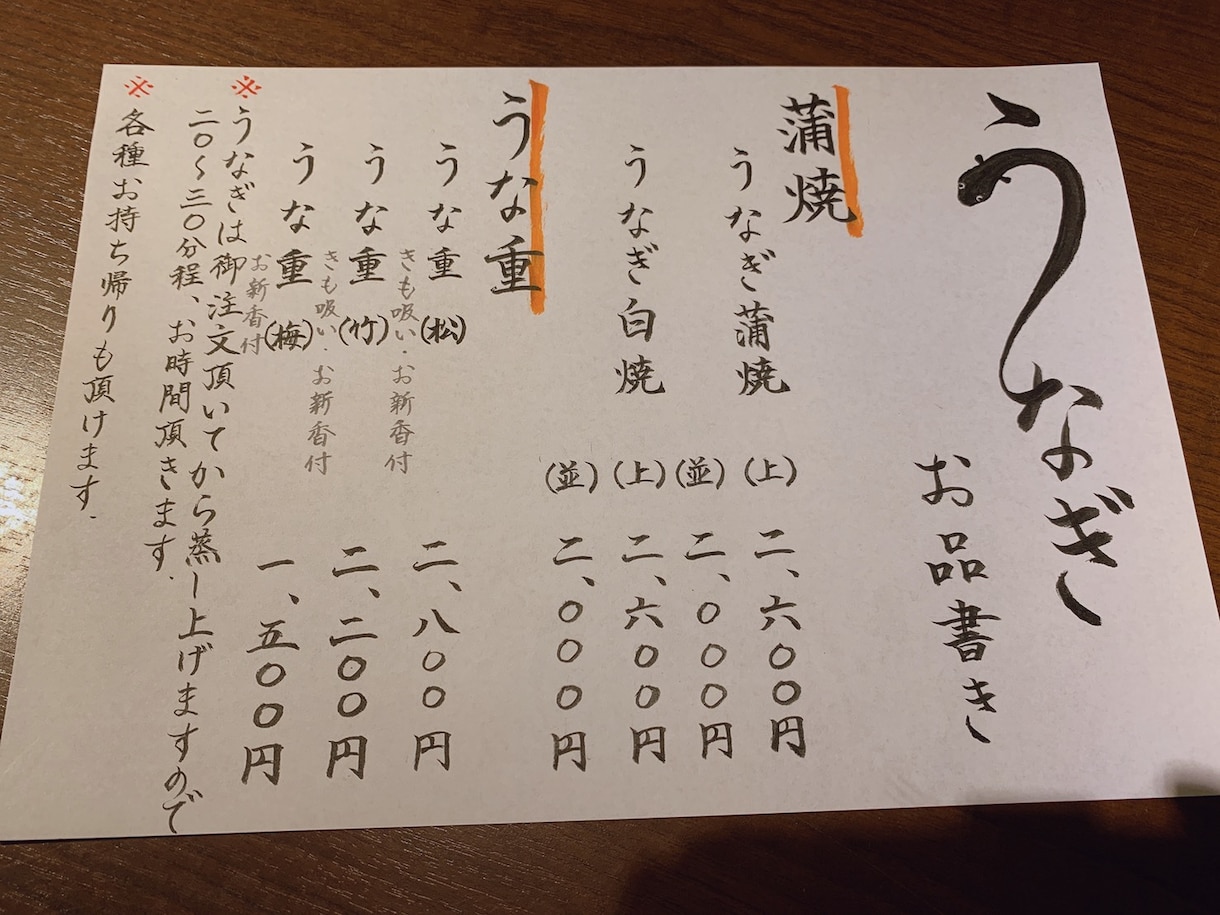 うなぎ
お品書き
蒲焼
うなぎ蒲焼 (上) 二、六〇〇円
(並) 二、〇〇〇円
うなぎ白焼 (上) 二、六〇〇円
(並) 二、〇〇〇円
うな重
うな重 (松) 二、八〇〇円
きも吸い・お新香付
うな重 (竹) 二、二〇〇円
きも吸い・お新香付
うな重 (梅) 一、五〇〇円
お新香付
※うなぎは御注文頂いてから蒸し上げますので
二〇〜三〇分程、お時間頂きます.
※各種お持ち帰りも頂けます.